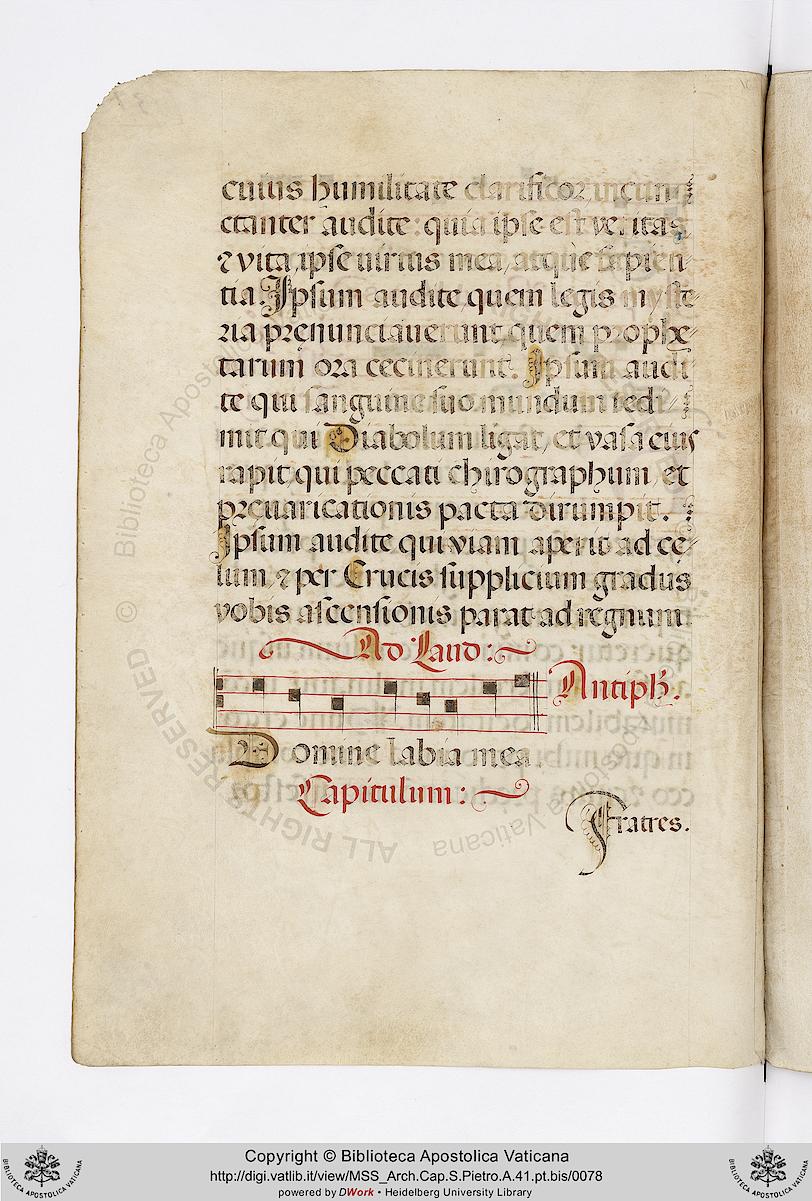 cuius humilitate clarificor incunq
ctanter audite: quia ipse est veritas,
⁊ vita, ipse uirtus mea, atque sapien-
tia. Ipsum audite, quem legis myste-
ria prenunciauerunt, quem prophe-
tarum ora cecinerunt. Ipsum audi-
te qui sanguine suo mundum redi-
mit qui Diabolum ligat, et vasa eius
rapit, qui peccati chirographum, et
preuaricationis pacta dirumpit.
Ipsum audite qui viam aperit ad ce-
lum, ⁊ per Crucis supplicium gradus
vobis ascensionis parat ad regnum
Ad Laud:
Antiph.
Domine labia mea.
Capitulum:
Fratres.
© Biblioteca Apostolica Vaticana
ALL RIGHTS RESERVED
Copyright © Biblioteca Apostolica Vaticana
http://digi.vatlib.it/view/MSS_Arch.Cap.S.Pietro.A.41.pt.bis/0078
powered by DWork • Heidelberg University Library
BIBLIOTECA APOSTOLICA VATICANA
BIBLIOTECA APOSTOLICA VATICANA